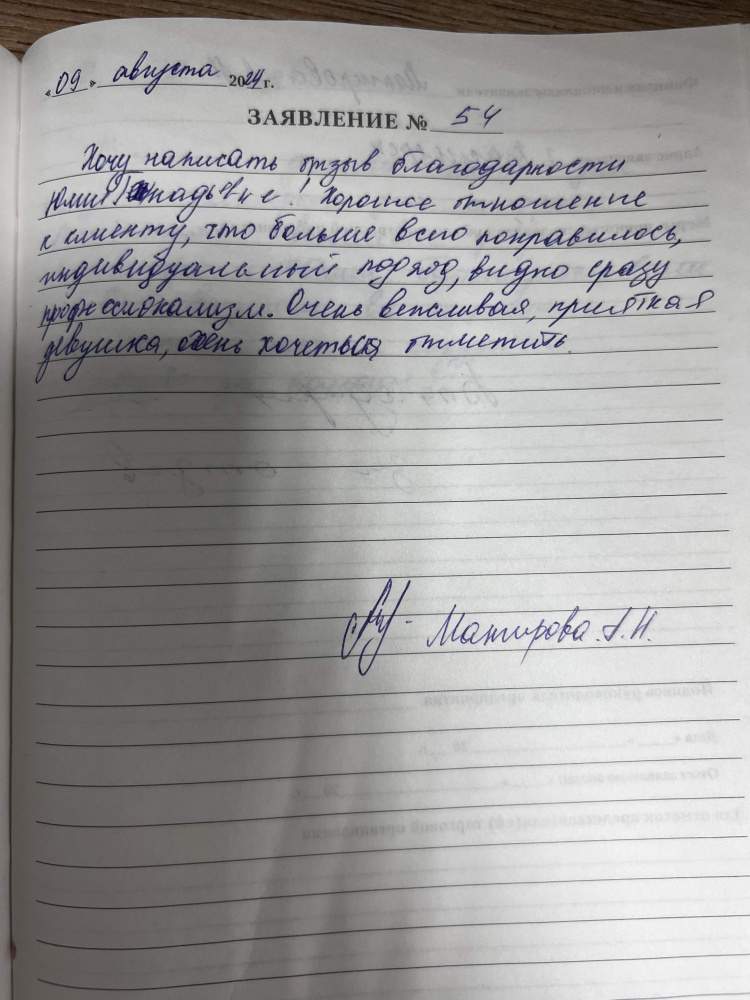 «09» августа 2024 г.
ЗАЯВЛЕНИЕ № 54
Хочу написать отзыв благодарности
Юлии Геннадьевне! Хорошее отношение
к клиенту, что больше всего понравилось,
индивидуальный подход, видно сразу
профессионализм. Очень вежливая, приятная
девушка, очень хочеться отметить.
А.Н.